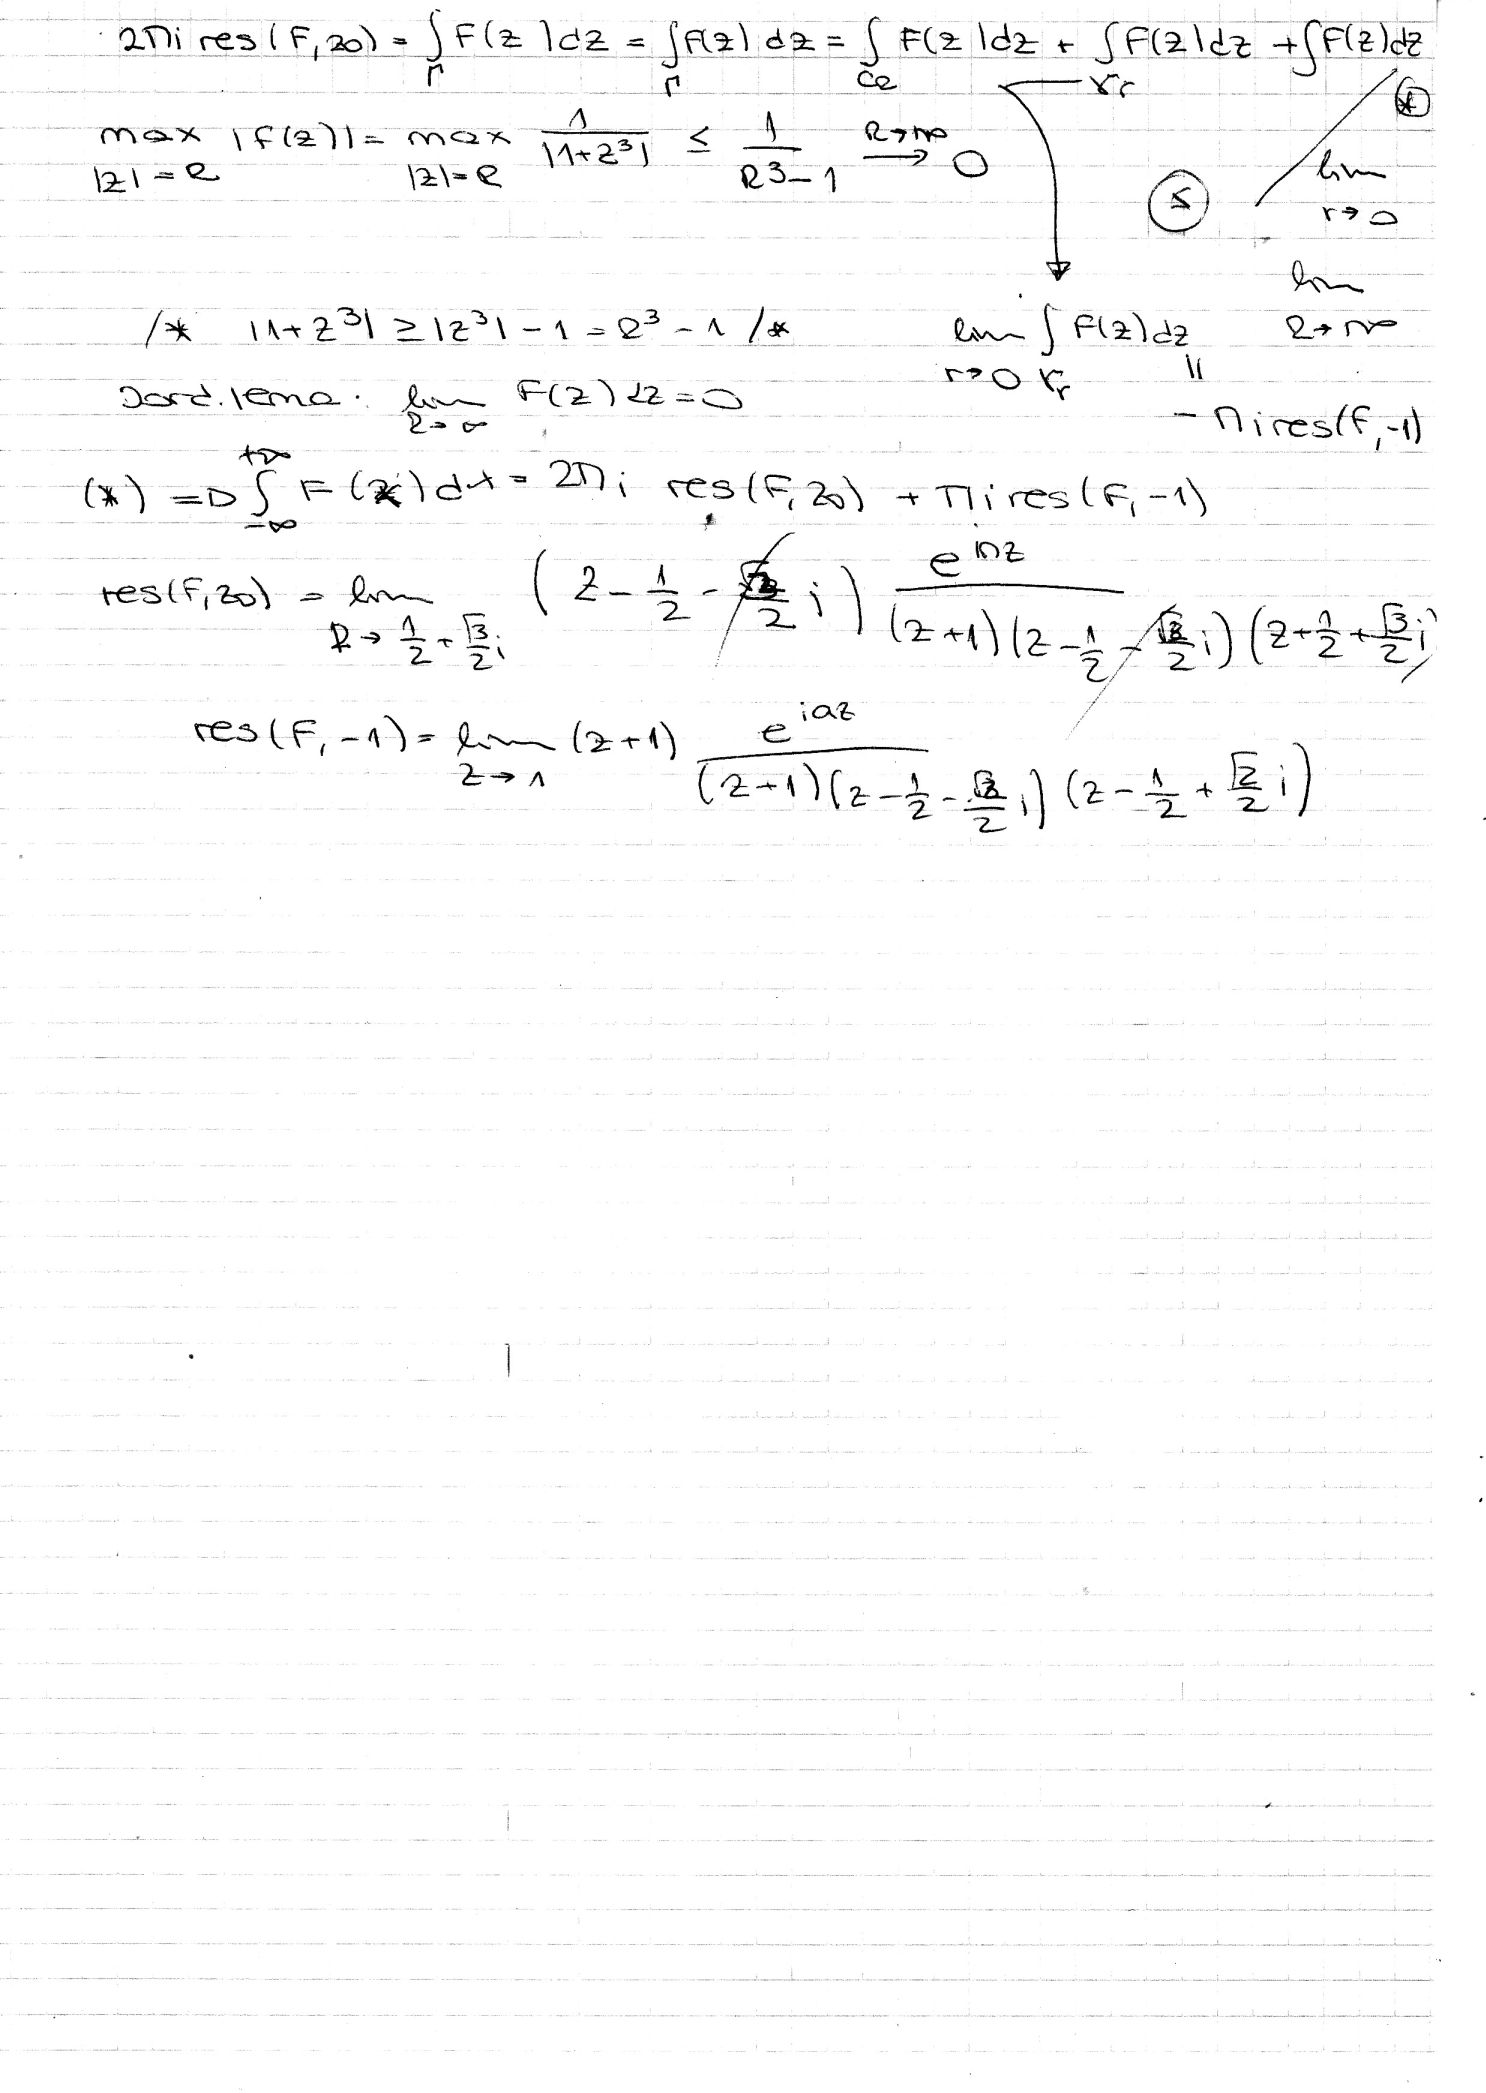 2πi res(F,z0) = ∫_Γ F(z)dz = ∫_Γ F(z)dz = ∫_CR F(z)dz + ∫_γr F(z)dz + ∫F(z)dz (*)
max_{|z|=R} |f(z)| = max_{|z|=R} 1/|1+z³| ≤ 1/(R³-1) →^{R→∞} 0
(5)
lim r→0
lim R→∞
/* |1+z³| ≥ |z³| - 1 = R³ - 1 /*
lim_{r→0} ∫_γr F(z)dz
||
- πi res(F,-1)
Jord. lema: lim_{R→∞} F(z)dz = 0
(*) => ∫_{-∞}^{+∞} F(x)dx = 2πi res(F,z0) + πi res(F,-1)
res(F,z0) = lim_{z→ 1/2 + √3/2 i} (z - 1/2 - √3/2 i) e^{iaz} / (z+1)(z - 1/2 - √3/2 i)(z + 1/2 + √3/2 i)
res(F,-1) = lim_{z→1} (z+1) e^{iaz} / (z+1)(z - 1/2 - √3/2 i)(z - 1/2 + √2/2 i)